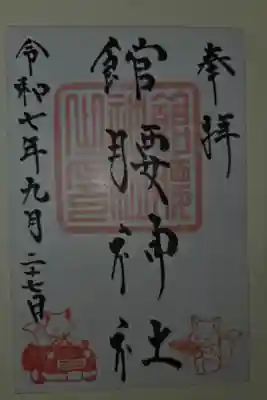 奉拝
館腰神社
令和七年九月二十七日